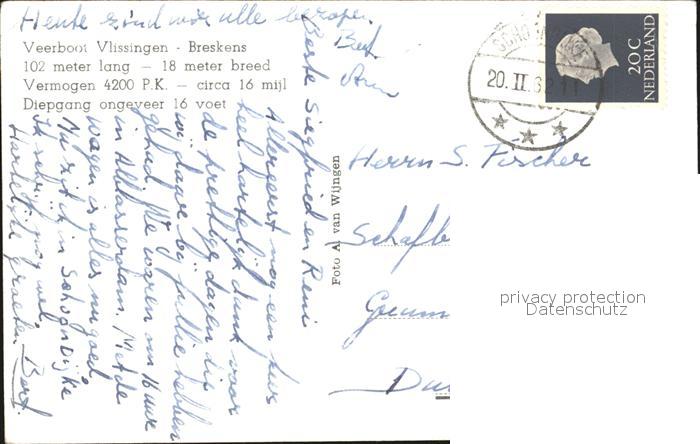 Heute sind wir alle
Veerboot Vlissingen - Breskens
102 meter lang — 18 meter breed
Vermogen 4200 P.K. — circa 16 mijl
Diepgang ongeveer 16 voet
Beste Siegfried en Reni
Allereerst nog een keer
heel hartelijk dank voor
de prettige dagen die
wij bij jullie hebben
gehad. We waren om 16 uur
in Alblasserdam. Met de
wagen is alles nu goed
Nu zit ik in Schoondijke
Ik schrijf nog wel.
Hartelijke groeten Bert.
Foto A. van Wijngen
20.II.62
20C
NEDERLAND
Herrn S. Fischer
privacy protection
Datenschutz